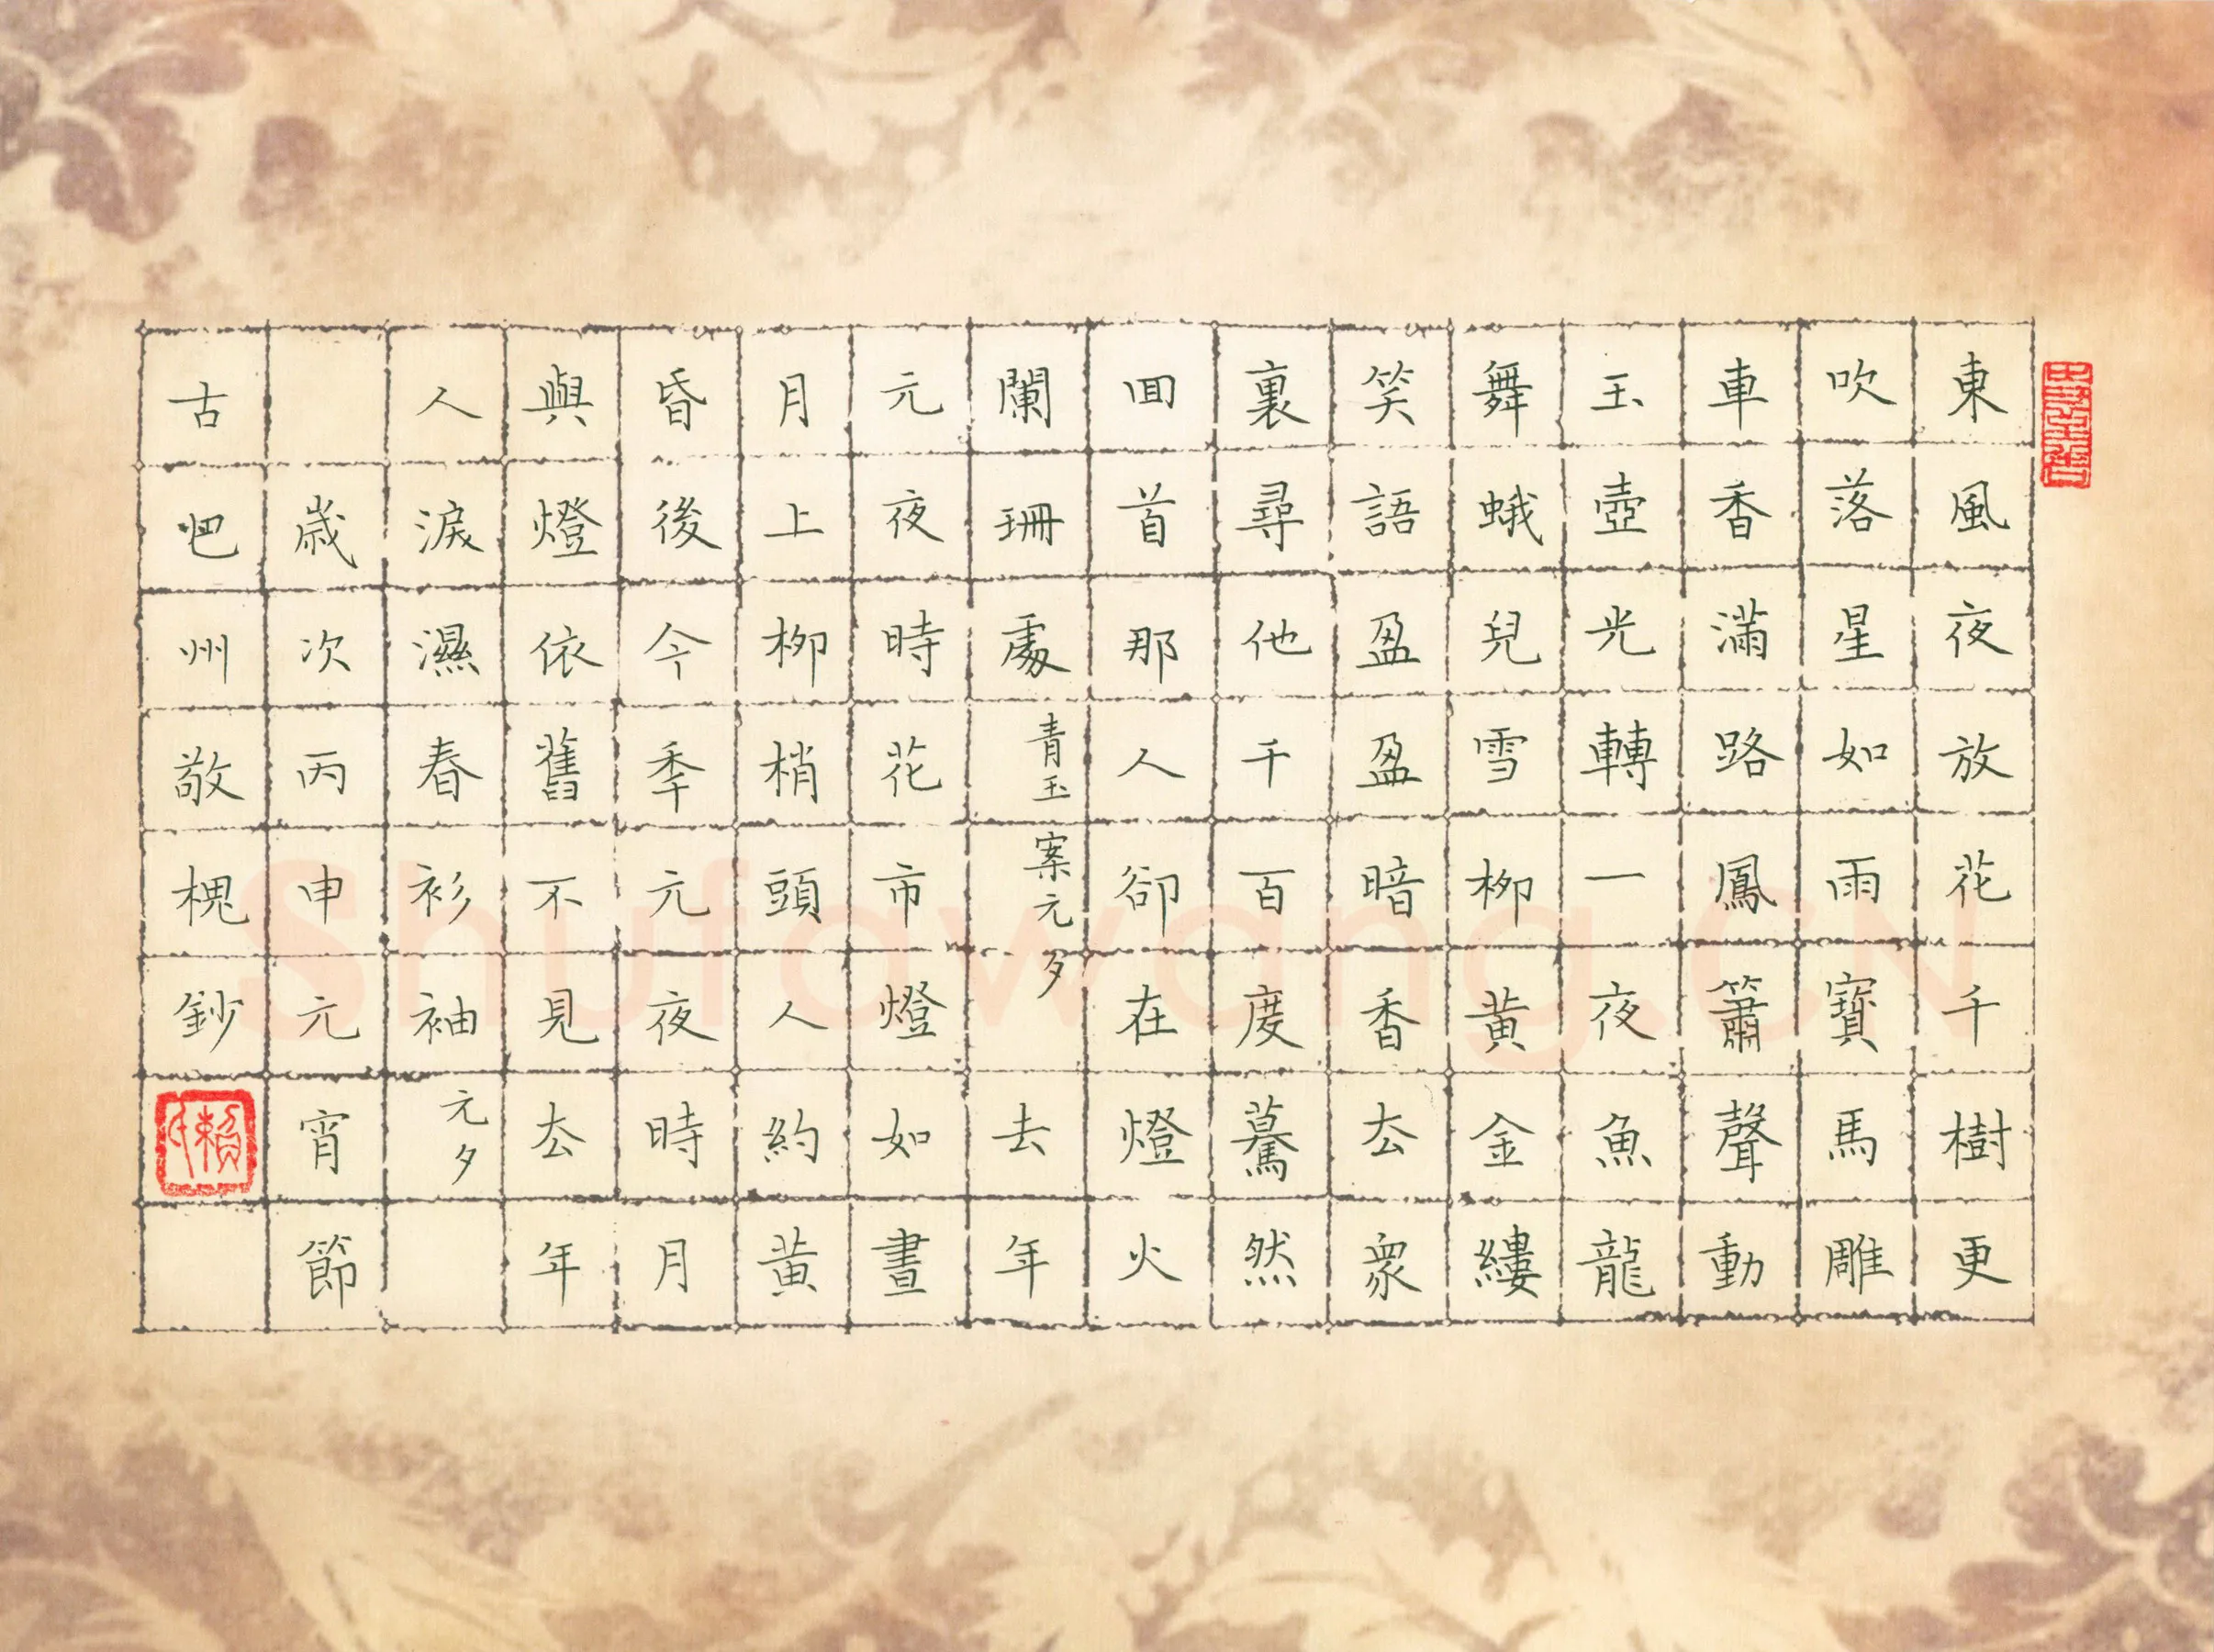 東風夜放花千樹更
吹落星如雨寶馬雕
車香滿路鳳簫聲動
玉壺光轉一夜魚龍
舞蛾兒雪柳黃金縷
笑語盈盈暗香去眾
裏尋他千百度驀然
回首那人卻在燈火
闌珊處青玉案元夕去年
元夜時花市燈如晝
月上柳梢頭人約黃
昏後今季元夜時月
與燈依舊不見去年
人淚濕春衫袖元夕
歲次丙申元宵節
古巴州敬槐鈔
賴氏
Shufawang.CN